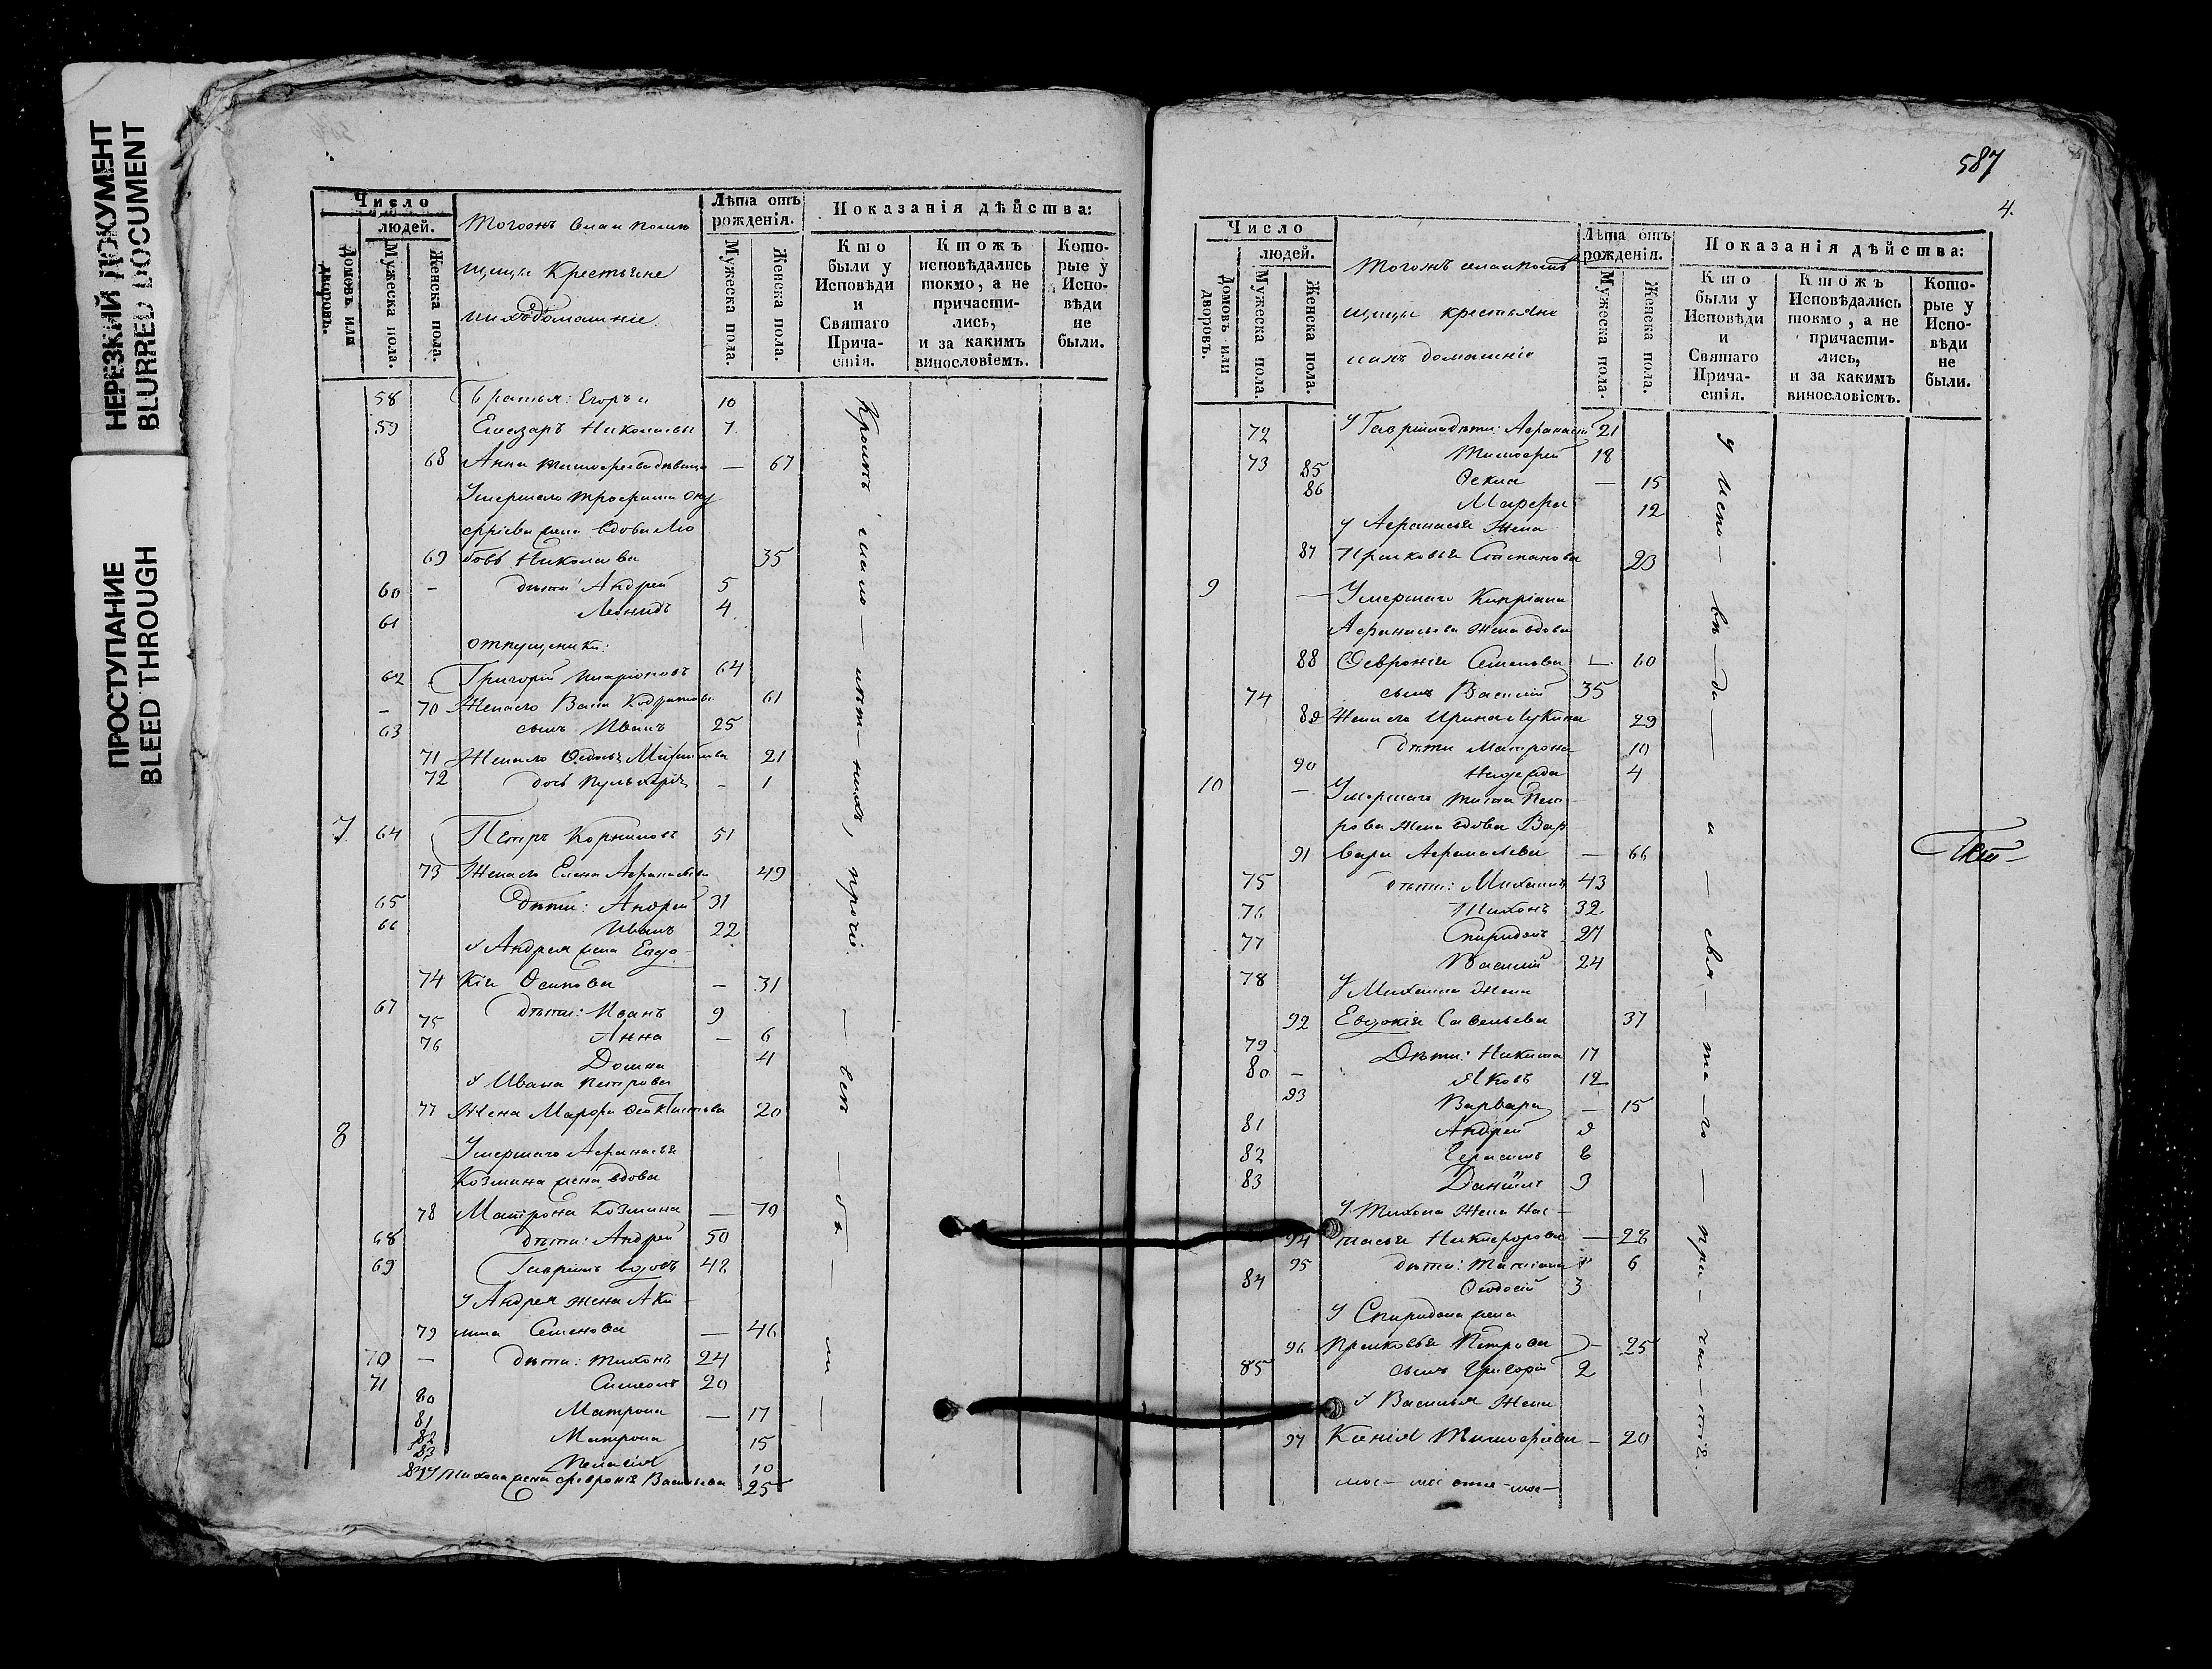 НЕРЕЗКИЙ ДОКУМЕНТ
BLURRED DOCUMENT
ПРОСТУПАНИЕ
BLEED THROUGH
Число
людей.
Домовъ или дворовъ.
Мужеска пола.
Женска пола.
Крестьяне
Лѣта отъ рожденія.
Мужеска пола.
Женска пола.
Показанія дѣйства:
Кто были у Исповѣди и Святаго Причастія.
Ктожъ исповѣдались токмо, а не причастились, и за какимъ винословіемъ.
Которые у Исповѣди не были.
58 Братья: Егоръ и 10
59 Елеазаръ Николаевы 7
68 Анна — 67
Умершаго Трофима Ону
фріева жена вдова Лю
69 бовь Николаева 35
60 — дѣти: Андрей 5
61 Леонидъ 4
отпущеники:
62 Григорій Иларіоновъ 64
— 70 Жена его 61
63 сынъ Иванъ 25
71 Жена его 21
72 дочь Пульхерія — 1
7 64 Петръ Корниловъ 51
73 Жена его Елена Афанасьева 49
65 Дѣти: Андрей 31
66 Иванъ 22
У Андрея жена Евдо
74 кія Осипова — 31
67 дѣти: Иванъ 9
75 Анна — 6
76 Домна 4
У Ивана Петрова
77 Жена Марфа Феоктистова 20
8 Умершаго Афанасья
Козмина жена вдова
78 Матрона Козмина — 70
68 дѣти: Андрей 50
69 Гавріилъ вдовъ 48
У Андрея жена Аки
79 лина Семенова — 46
70 — дѣти: Тихонъ 24
71 Симеонъ 20
80 Матрона — 17
81 Матрона 15
82
83 Пелагія 10
84 У Тихона жена Февронія Васильева 25
Кромѣ
прочіе — всѣ — бы — ли —
587
4.
Число
людей.
Домовъ или дворовъ.
Мужеска пола.
Женска пола.
крестьяне
ихъ домашніе
Лѣта отъ рожденія.
Мужеска пола.
Женска пола.
Показанія дѣйства:
Кто были у Исповѣди и Святаго Причастія.
Ктожъ Исповѣдались токмо, а не причастились, и за какимъ винословіемъ.
Которые у Исповѣди не были.
72 У Гавріила дѣти: Афанасій 21
73 Тимофей 18
85 Фекла — 15
86 Марфа 12
У Афанасья Жена
87 Прасковья Степанова 23
9 — Умершаго Кипріана
Афанасьева жена вдова
88 Февронія Семенова — 60
74 сынъ Василій 35
89 Жена его Ирина Лукина 29
дѣти Матрона 10
90 Надежда 4
10 — Умершаго Тита Пет-
рова жена вдова Вар
91 вара Афанасьева — 66
75 дѣти: Михаилъ 43
76 Тихонъ 32
77 Спиридонъ 27
78 Василій 24
У Михаила Жена
92 Евдокія Савельева 37
79 Дѣти: Никита 17
80 — Яковъ 12
93 Варвара — 15
81 Андрей 9
82 Герасимъ 6
83 Даніилъ 3
У Тихона Жена Нас-
94 тасья Никифорова — 28
95 дѣти: Татіана 6
84 Феодосій 3
У Спиридона жена
96 Прасковья Петрова — 25
85 сынъ Григорій 2
У Василья Жена
97 Ксенія Тимофѣева — 20
у испо — вѣ — ди — и — свя — та — го — при — ча — стія.